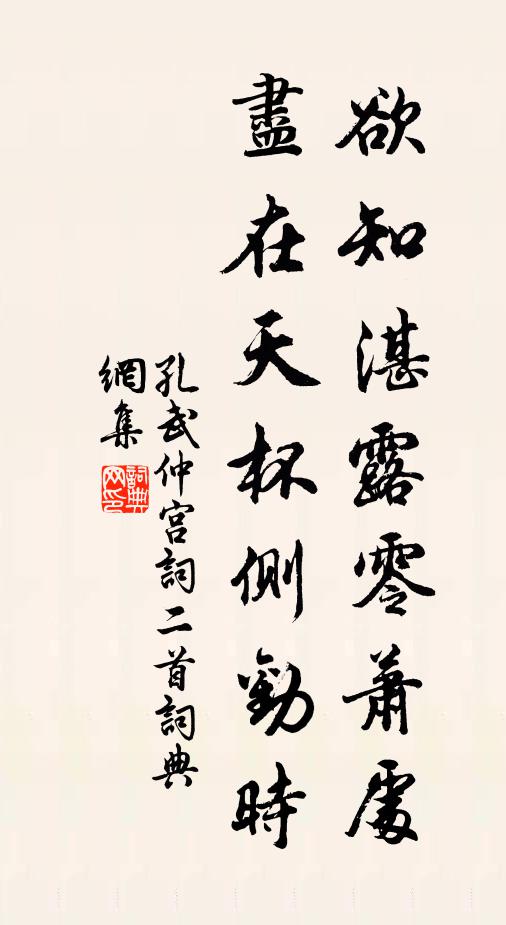 欲知湛露零萧處
盡在天杯側勸時
孔武仲宫詞二首詞典
網集
詞典
网印